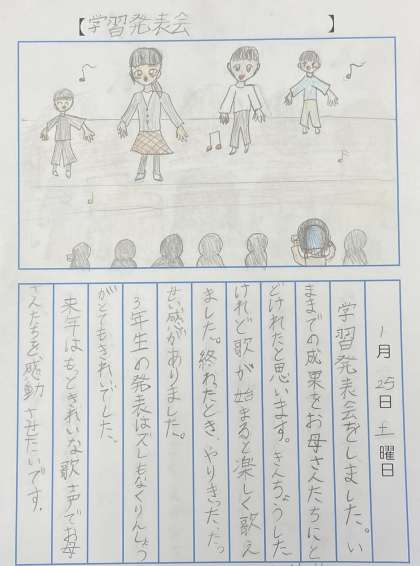 【学習発表会】
1月25日土曜日
学習発表会をしました。い
ままでの成果をお母さんたちにと
どけれたと思います。きんちょうした
けれど歌が始まると楽しく歌え
ました。終れたとき、やりきった、たっ
せい感がありました。
3年生の発表はズレもなくりんしょう
がとてもきれいでした。
来年はもっときれいな歌声でお母
さんたちを感動させたいです。